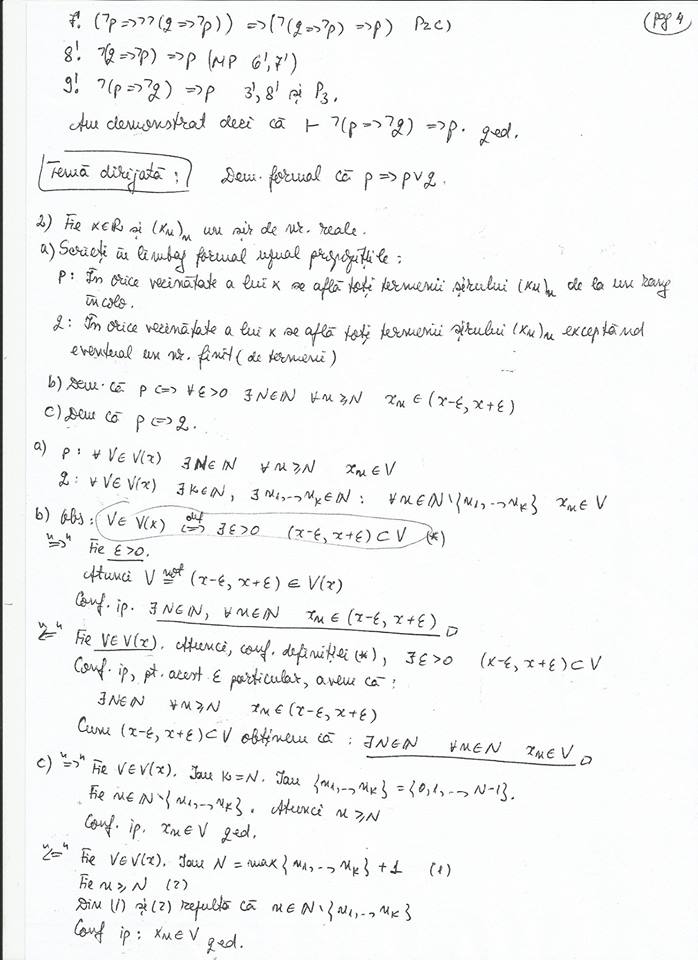 (pg 4)
7'. (⌉p=>⌉⌉(q=>⌉p)) =>(⌉(q=>⌉p) =>p) P2c)
8'. ⌉(q=>⌉p) =>p (MP 6',7')
9'. ⌉(p=>⌉q) =>p 3',8' și P3.
Am demonstrat deci că ⊢ ⌉(p=>⌉q) =>p. qed.
Temă dirijată: Dem. formal că p=>p∨q.
2) Fie x∈R și (xn)n un șir de nr. reale.
a) Scrieți în limbaj formal uzual propozițiile:
p: În orice vecinătate a lui x se află toți termenii șirului (xn)n de la un rang
încolo.
q: În orice vecinătate a lui x se află toți termenii șirului (xn)n exceptând
eventual un nr. finit (de termeni)
b) Dem. că p <=> ∀ε>0 ∃N∈N ∀n≥N xn∈(x-ε, x+ε)
c) Dem că p <=> q.
a) p: ∀V∈V(x) ∃N∈N ∀n≥N xn∈V
q: ∀V∈V(x) ∃k∈N, ∃n1,..,nk∈N: ∀n∈N\{n1,..,nk} xn∈V
b) Obs: V∈V(x) <=>def ∃ε>0 (x-ε, x+ε)⊂V (*)
"=>" Fie ε>0.
Atunci V =not (x-ε, x+ε)∈V(x)
Conf. ip. ∃N∈N, ∀n∈N xn∈(x-ε, x+ε) □
"<=" Fie V∈V(x). Atunci, conf. definiției (*), ∃ε>0 (x-ε, x+ε)⊂V
Conf. ip, pt. acest ε particular, avem că:
∃N∈N ∀n≥N xn∈(x-ε, x+ε)
Cum (x-ε, x+ε)⊂V obținem că: ∃N∈N ∀n∈N xn∈V □
c) "=>" Fie V∈V(x). Iau k=N. Iau {n1,..,nk} = {0,1,..,N-1}.
Fie n∈N\{n1,..,nk}. Atunci n≥N
Conf. ip. xn∈V qed.
"<=" Fie V∈V(x). Iau N = max{n1,..,nk} +1 (1)
Fie n≥N (2)
Din (1) și (2) rezultă că n∈N\{n1,..,nk}
Conf ip: xn∈V qed.